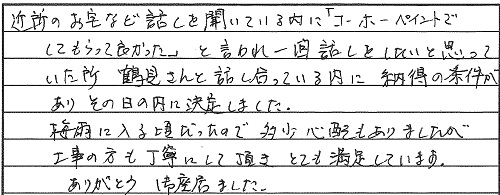 近所のお宅など話しを聞いている内に「コーホーペイントで
してもらって良かった」と言われ一回話しをしたいと思って
いた所 鶴見さんと話し合っている内に 納得の条件が
あり その日の内に決定しました。
梅雨に入る頃だったので 多少心配もありましたが
工事の方も丁寧にして頂き とても満足しています。
ありがとう ました。